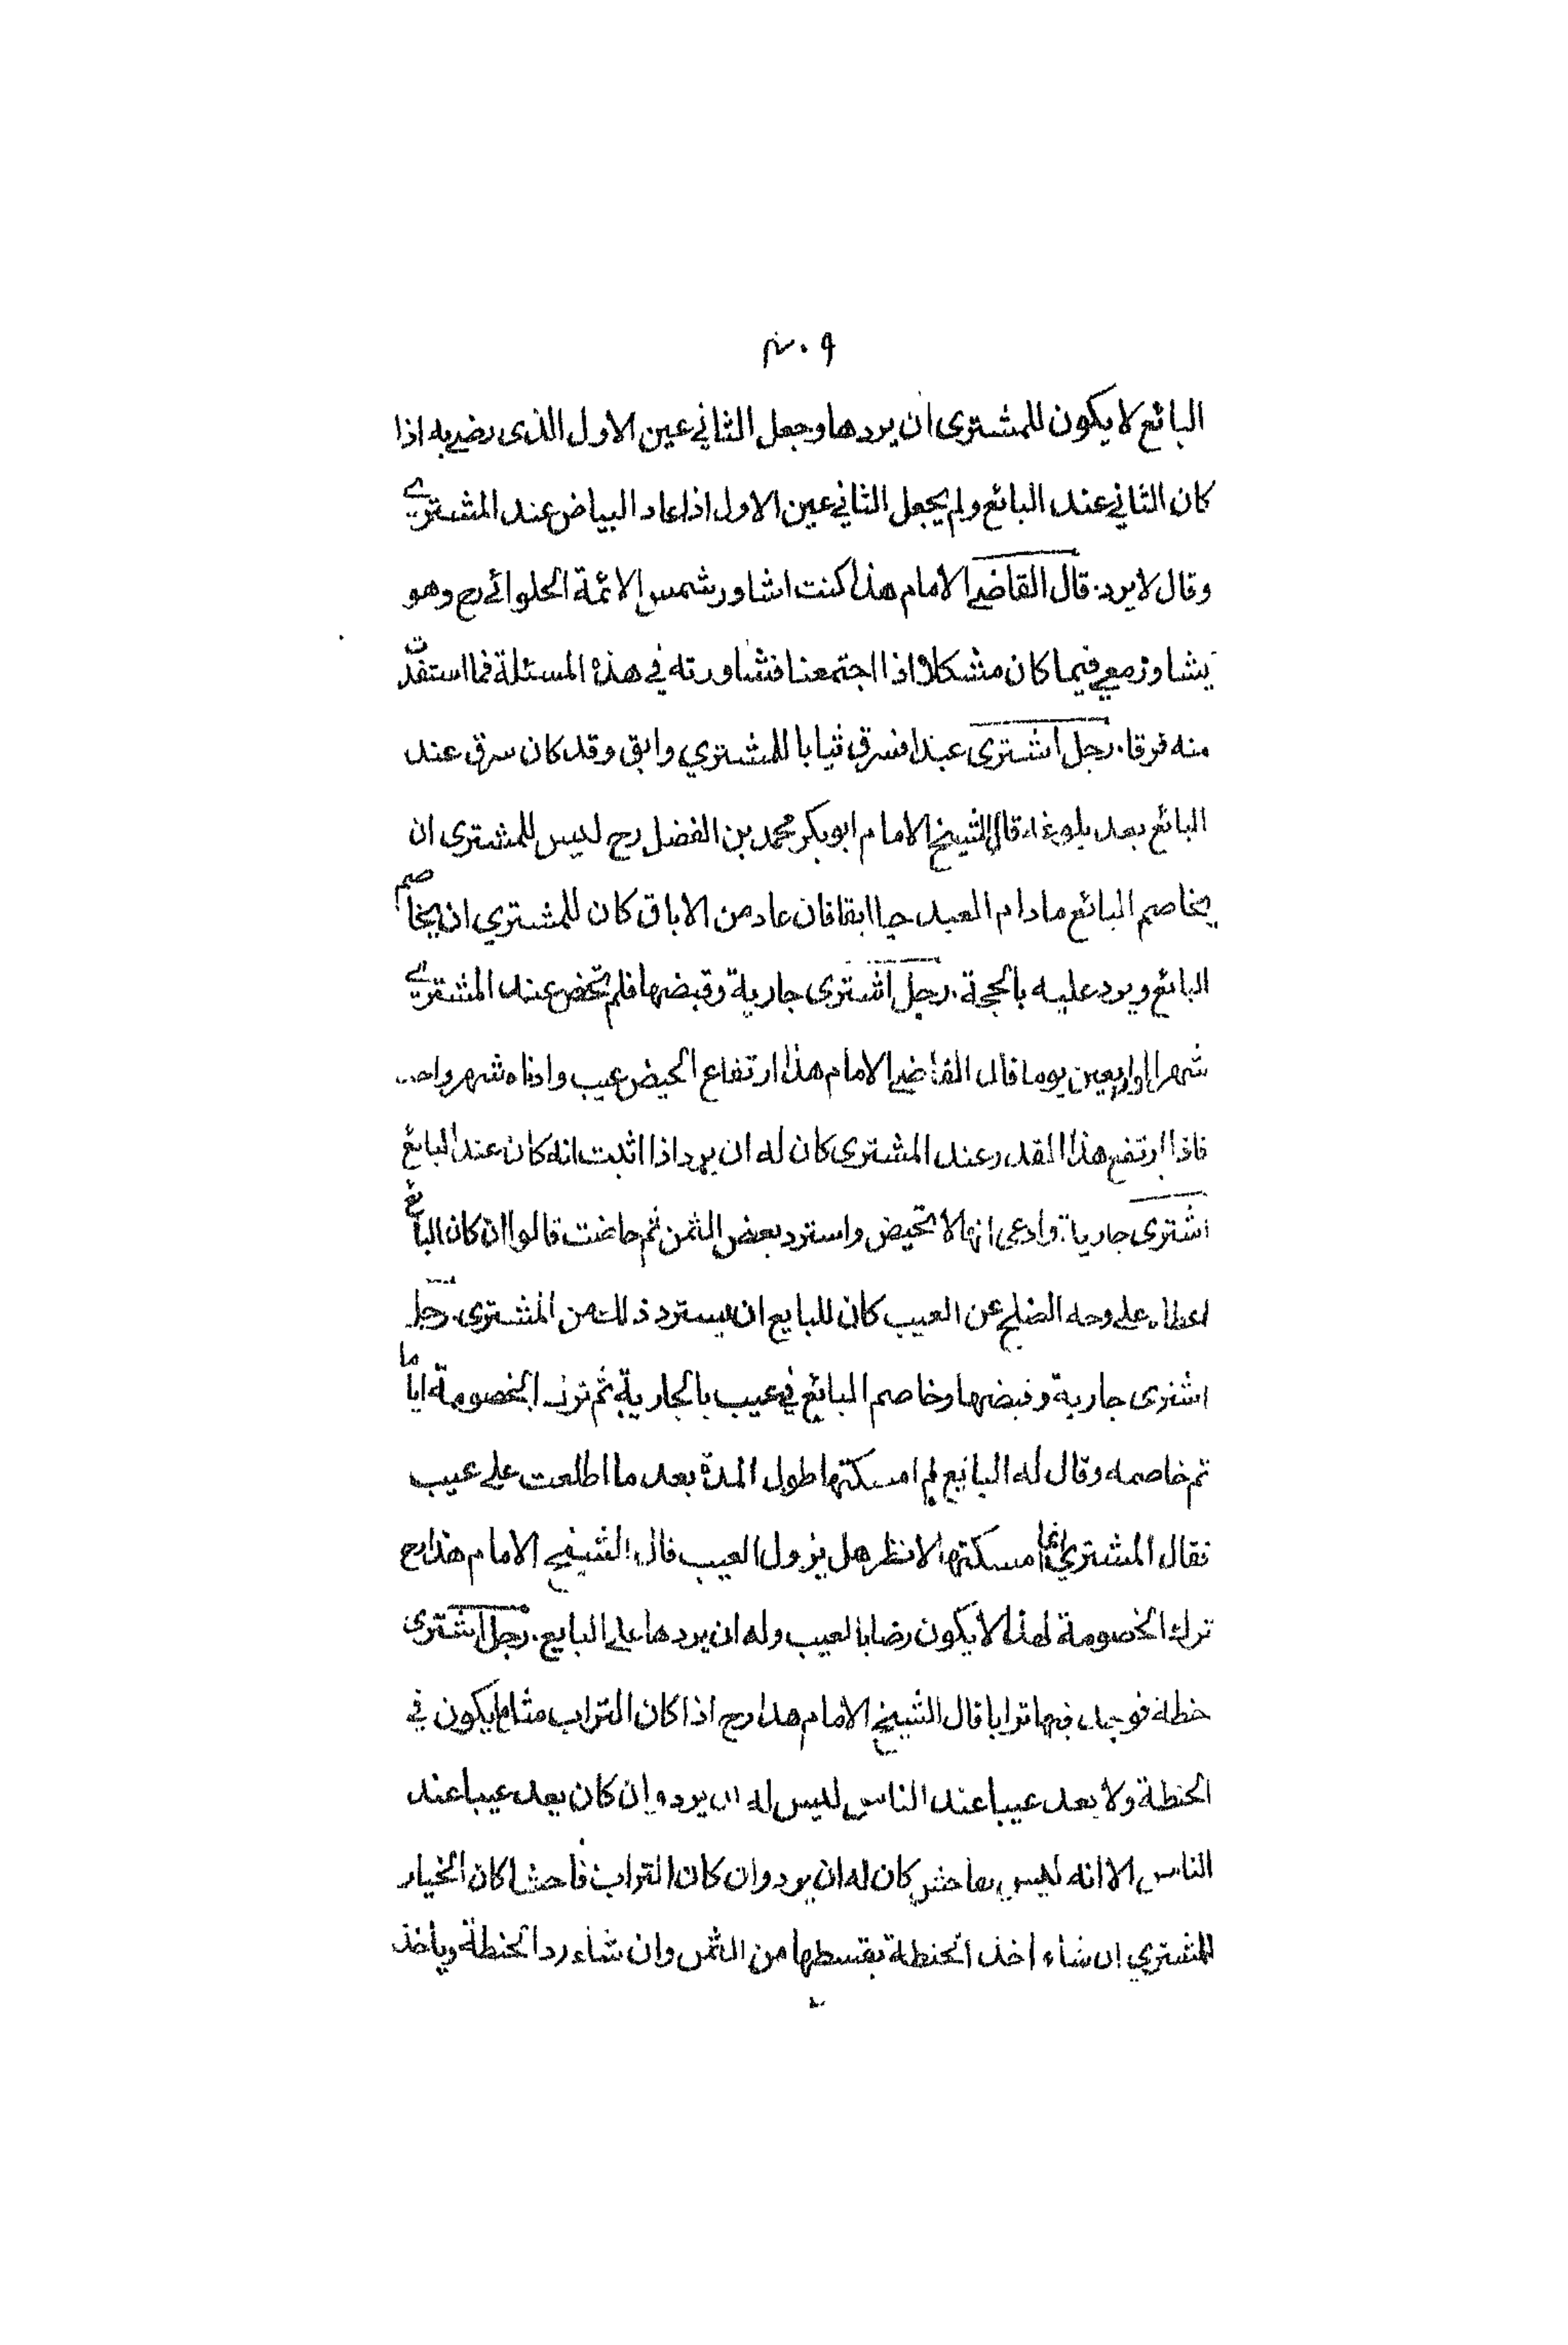 ٢٠٩
البائع لا يكون للمشترى ان يردها وجعل الثاني عين الاول الذى رضي به اذا
كان الثاني عند البائع ولم يجعل الثاني عين الاول اذا عاد البياض عند المشتري
وقال لا يرد. قال القاضي الامام هذا كنت اشاور شمس الائمة الحلوائي رح وهو
يشاور معي فيما كان مشكلا اذا اجتمعنا فشاورته في هذه المسئلة فما استفدت
منه فرقا. رجل اشترى عبدا فسرق ثيابا للمشتري وابق وقد كان سرق عند
البائع بعد بلوغه قال الشيخ الامام ابو بكر محمد بن الفضل رح ليس للمشترى ان
يخاصم البائع مادام العبد حيا ابقا فان عاد من الاباق كان للمشتري ان يخاصم
البائع ويرد عليه بالحجة. رجل اشترى جارية وقبضها فلم تحض عند المشتري
شهرا او اربعين يوما قال القاضي الامام هذا ارتفاع الحيض عيب وادناه شهر واحد
فاذا ارتفع هذا القدر عند المشترى كان له ان يرد اذا اثبت انه كان عند البائع
اشترى جارية وادعى انها لا تحيض واسترد بعض الثمن ثم حاضت قالوا ان كان البائع
اعطاه على وجه الصلح عن العيب كان للبايع ان يسترد ذلك من المشترى. رجل
اشترى جارية وقبضها وخاصم البائع في عيب بالجارية ثم ترك الخصومة اياما
ثم خاصمه وقال له البائع لم امسكتها طول المدة بعد ما اطلعت على عيب
فقال المشتري انما امسكتها لانظر هل يزول العيب قال الشيخ الامام هذا رح
ترك الخصومة لهذا لا يكون رضا بالعيب وله ان يردها على البايع. رجل اشترى
حنطة فوجد فيها ترابا قال الشيخ الامام هذا رح اذا كان التراب مثل ما يكون في
الحنطة ولا يعد عيبا عند الناس ليس له ان يرد وان كان يعد عيبا عند
الناس الا انه ليس بفاحش كان له ان يرد وان كان التراب فاحشا كان الخيار
للمشتري ان شاء اخذ الحنطة بقسطها من الثمن وان شاء رد الحنطة وياخذ